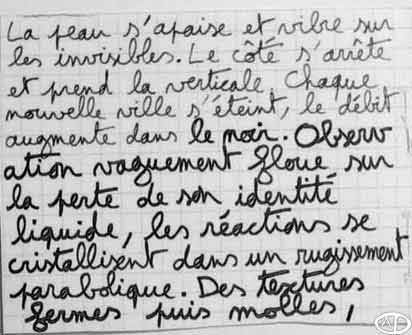 La peau s'apaise et vibre sur
les invisibles. Le côté s'arrête
et prend la verticale. Chaque
nouvelle ville s'éteint, le débit
augmente dans le noir. Observ
ation vaguement floue sur
la perte de son identité
liquide, les réactions se
cristallisent dans un rugissement
parabolique. Des textures
fermes puis molles,